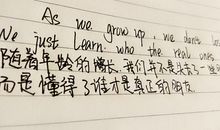 As we grow up, we don't lo
We just Learn who the real ones
随着年龄的增长,我们并不是失去了一些
而是懂得了谁才是真正的朋友